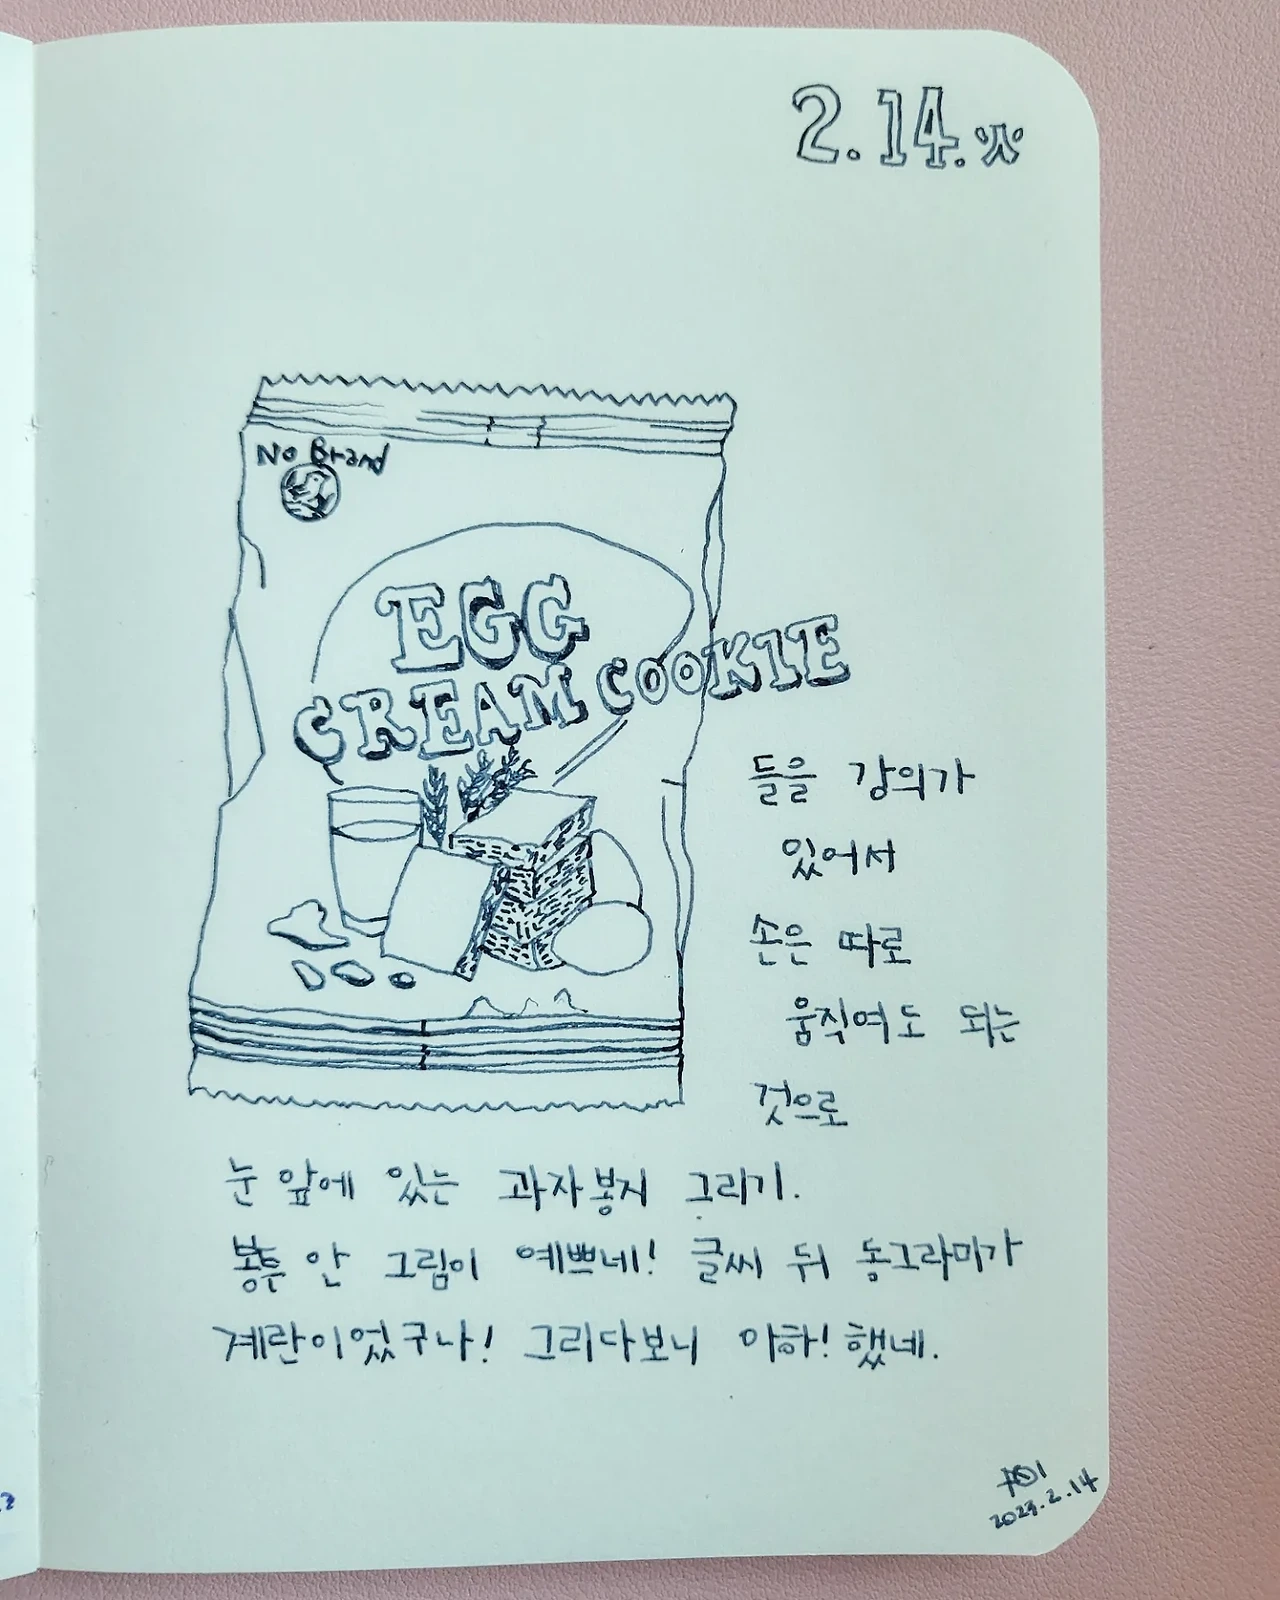 2.14.火
No Brand
EGG
CREAM COOKIE
들을 강의가
있어서
손은 따로
움직여도 되는
것으로
눈 앞에 있는 과자봉지 그리기.
봉투 안 그림이 예쁘네! 글씨 뒤 동그라미가
계란이었구나! 그리다보니 아하! 했네.
2023.2.14